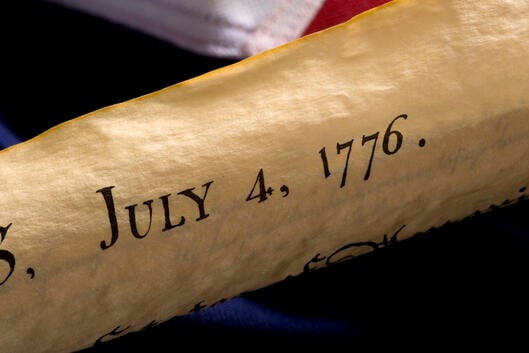 S, July 4, 1776.